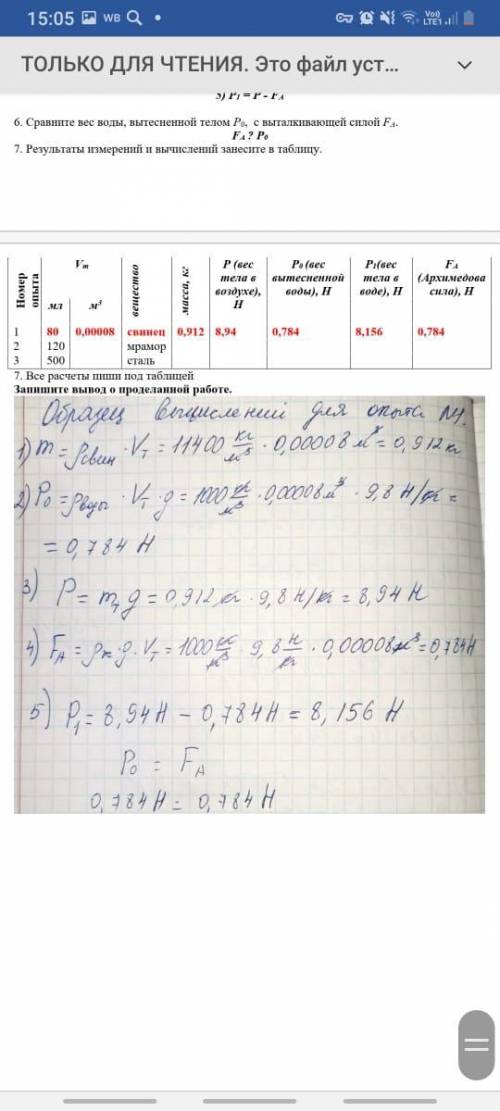 15:05 WB
Vo))
LTE1
ТОЛЬКО ДЛЯ ЧТЕНИЯ. Это файл уст...
5) P1 = P - FA
6. Сравните вес воды, вытесненной телом P0, с выталкивающей силой FA.
FA ? P0
7. Результаты измерений и вычислений занесите в таблицу.
Номер опыта | Vт | вещество | масса, кг | P (вес тела в воздухе), Н | P0 (вес вытесненной воды), Н | P1(вес тела в воде), Н | FA (Архимедова сила), Н
мл | м³
1 | 80 | 0,00008 | свинец | 0,912 | 8,94 | 0,784 | 8,156 | 0,784
2 | 120 | мрамор
3 | 500 | сталь
7. Все расчеты пиши под таблицей
Запишите вывод о проделанной работе.
Образец вычислений для опыта №1.
1) m = ρсвин · Vт = 11400 кг/м³ · 0,00008 м³ = 0,912 кг
2) P0 = ρводы · Vт · g = 1000 кг/м³ · 0,00008 м³ · 9,8 Н/кг =
= 0,784 Н
3) P = mт g = 0,912 кг · 9,8 Н/кг = 8,94 Н
4) FA = ρж · g · Vт = 1000 кг/м³ · 9,8 Н/кг · 0,00008 м³ = 0,784 Н
5) P1 = 8,94 Н − 0,784 Н = 8,156 Н
P0 = FA
0,784 Н = 0,784 Н